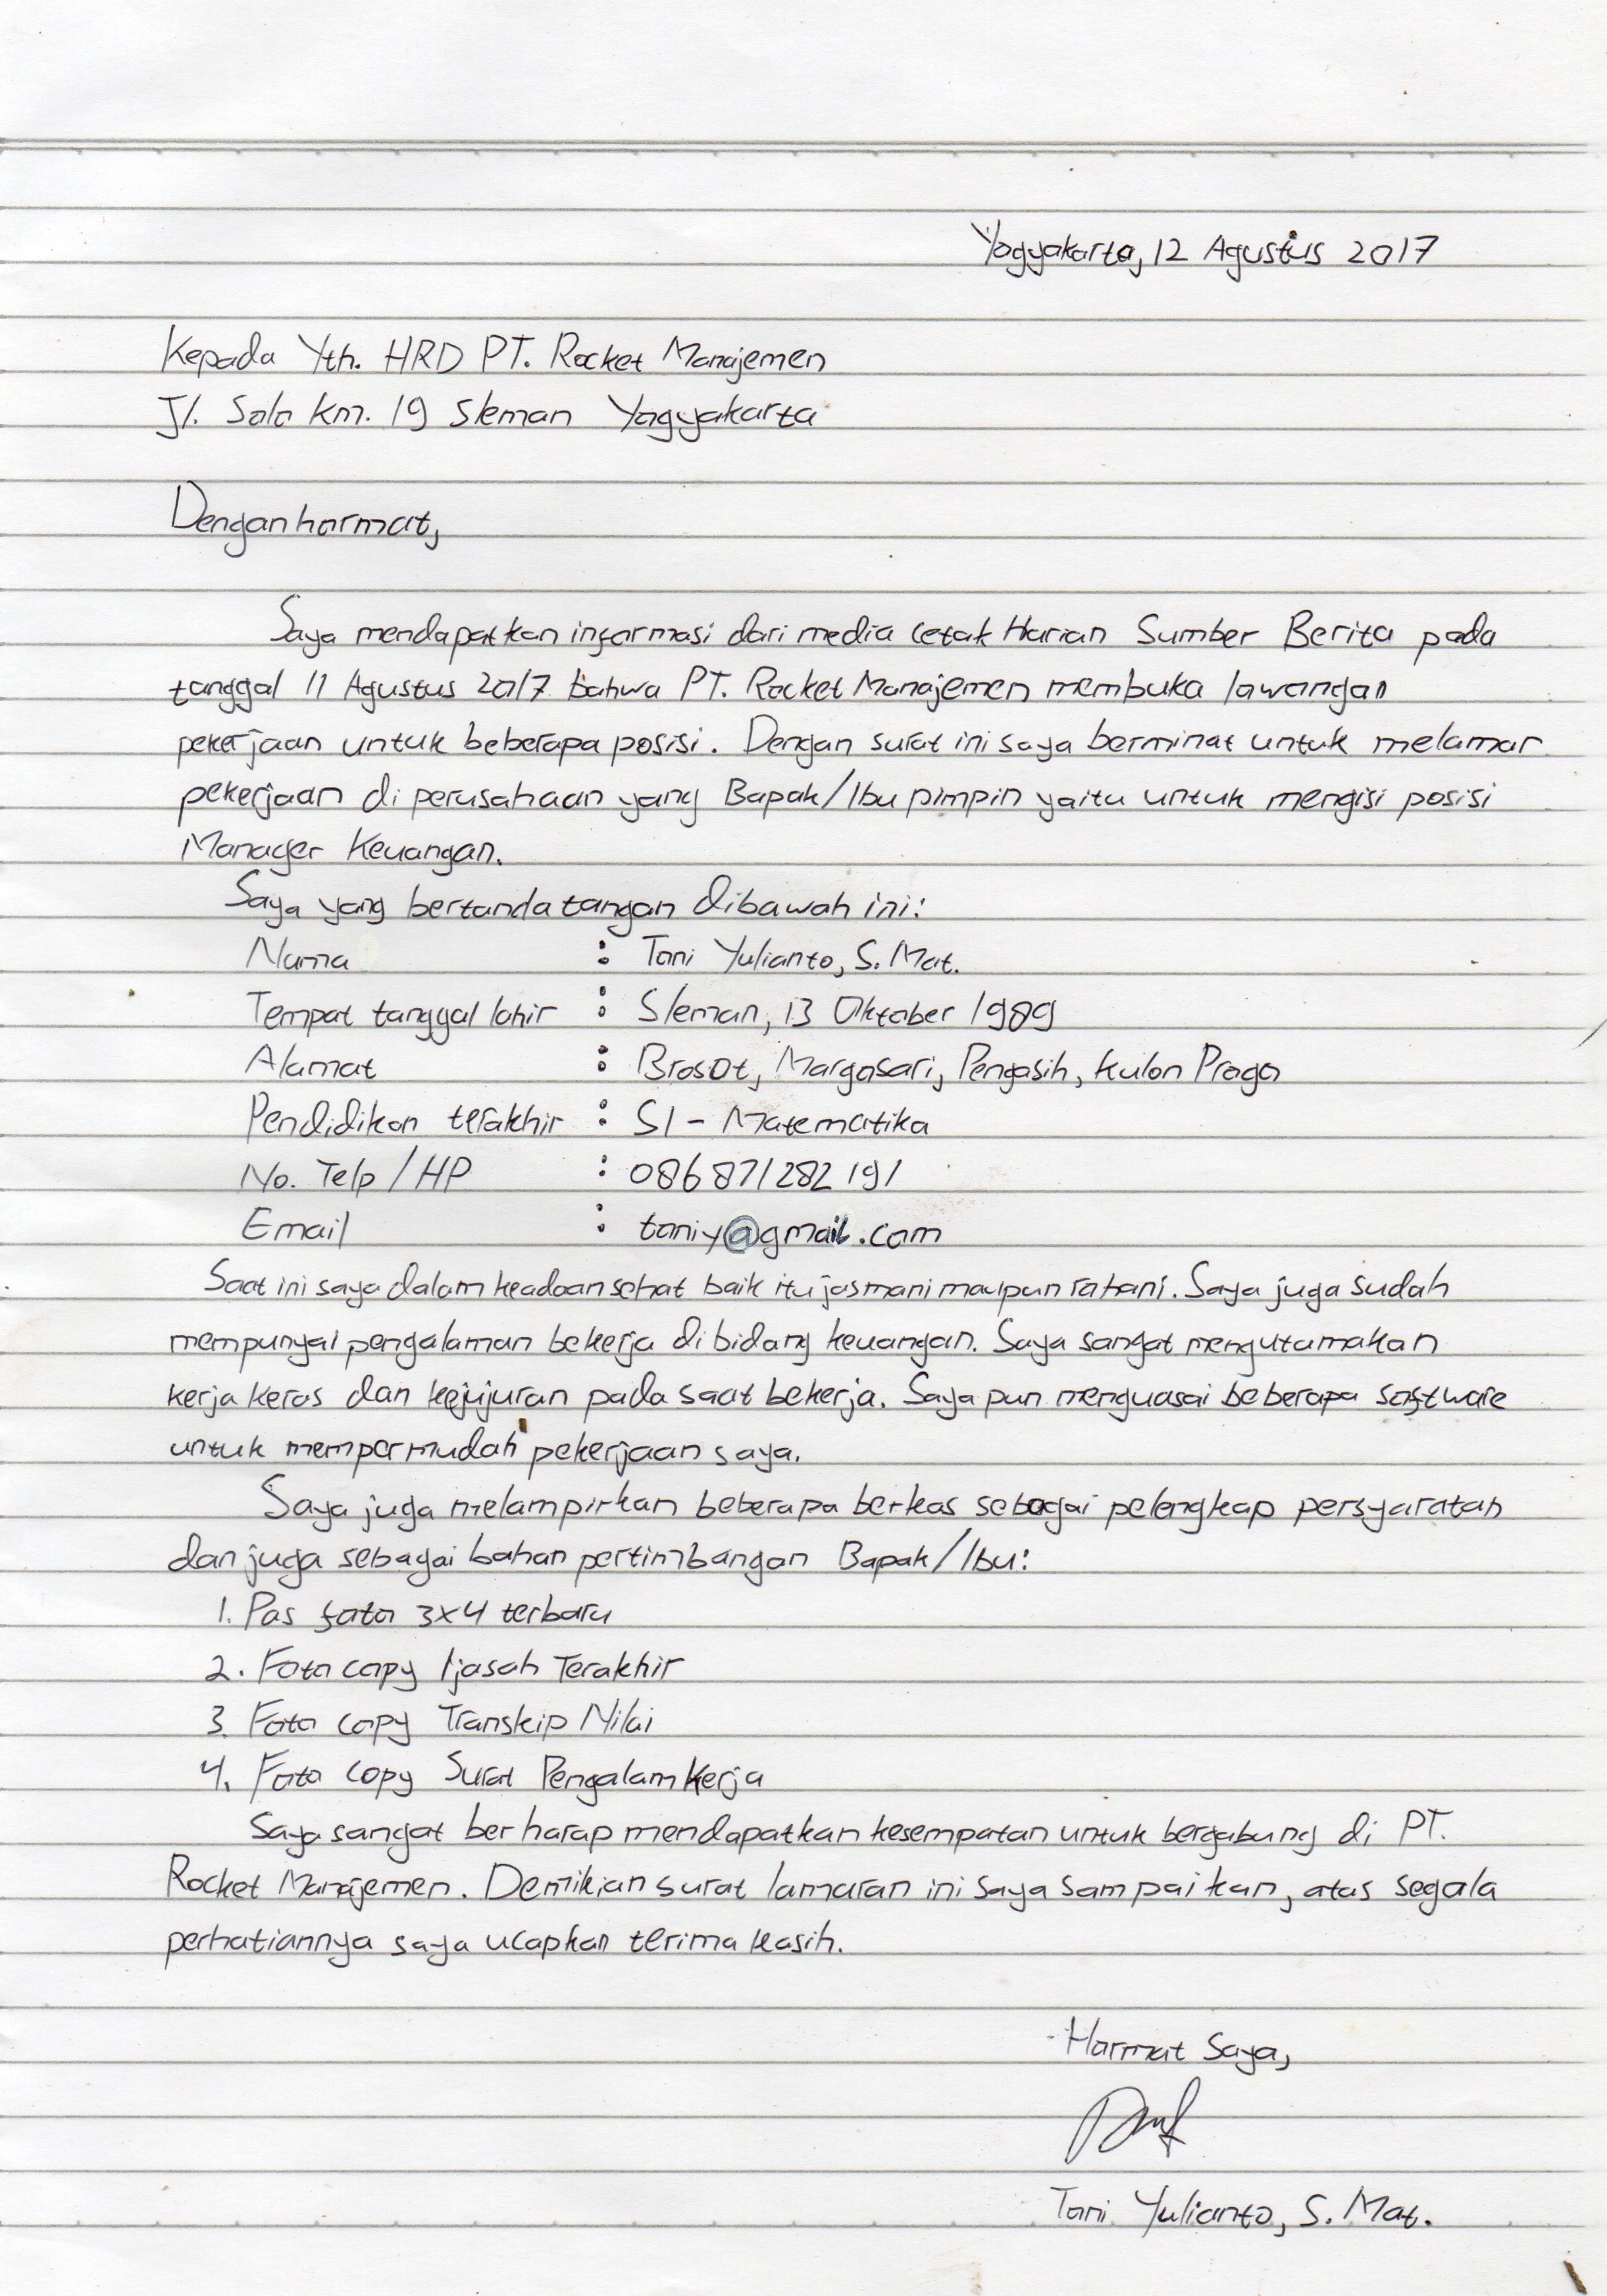 Yogyakarta, 12 Agustus 2017
Kepada Yth. HRD PT. Rocket Manajemen
Jl. Solo Km. 19 Sleman Yogyakarta
Dengan hormat,
Saya mendapatkan informasi dari media cetak Harian Sumber Berita pada
tanggal 11 Agustus 2017 bahwa PT. Rocket Manajemen membuka lawangan
pekerjaan untuk beberapa posisi. Dengan surat ini saya berminat untuk melamar
pekerjaan di perusahaan yang Bapak/Ibu pimpin yaitu untuk mengisi posisi
Manager Keuangan.
Saya yang bertanda tangan dibawah ini:
Nama : Toni Yulianto, S. Mat.
Tempat tanggal lahir : Sleman, 13 Oktober 1989
Alamat : Brosot, Margosari, Pengasih, Kulon Progo
Pendidikan terakhir : S1 - Matematika
No. Telp / HP : 086871282191
Email : toniy@gmail.com
Saat ini saya dalam keadaan sehat baik itu jasmani maupun rohani. Saya juga sudah
mempunyai pengalaman bekerja di bidang keuangan. Saya sangat mengutamakan
kerja keras dan kejujuran pada saat bekerja. Saya pun menguasai beberapa software
untuk mempermudah pekerjaan saya.
Saya juga melampirkan beberapa berkas sebagai pelengkap persyaratan
dan juga sebagai bahan pertimbangan Bapak/Ibu:
1. Pas foto 3x4 terbaru
2. Foto copy Ijasah Terakhir
3. Foto copy Transkip Nilai
4. Foto copy Surat Pengalam Kerja
Saya sangat berharap mendapatkan kesempatan untuk bergabung di PT.
Rocket Manajemen. Demikian surat lamaran ini saya sampaikan, atas segala
perhatiannya saya ucapkan terima kasih.
Hormat Saya,
Toni Yulianto, S. Mat.